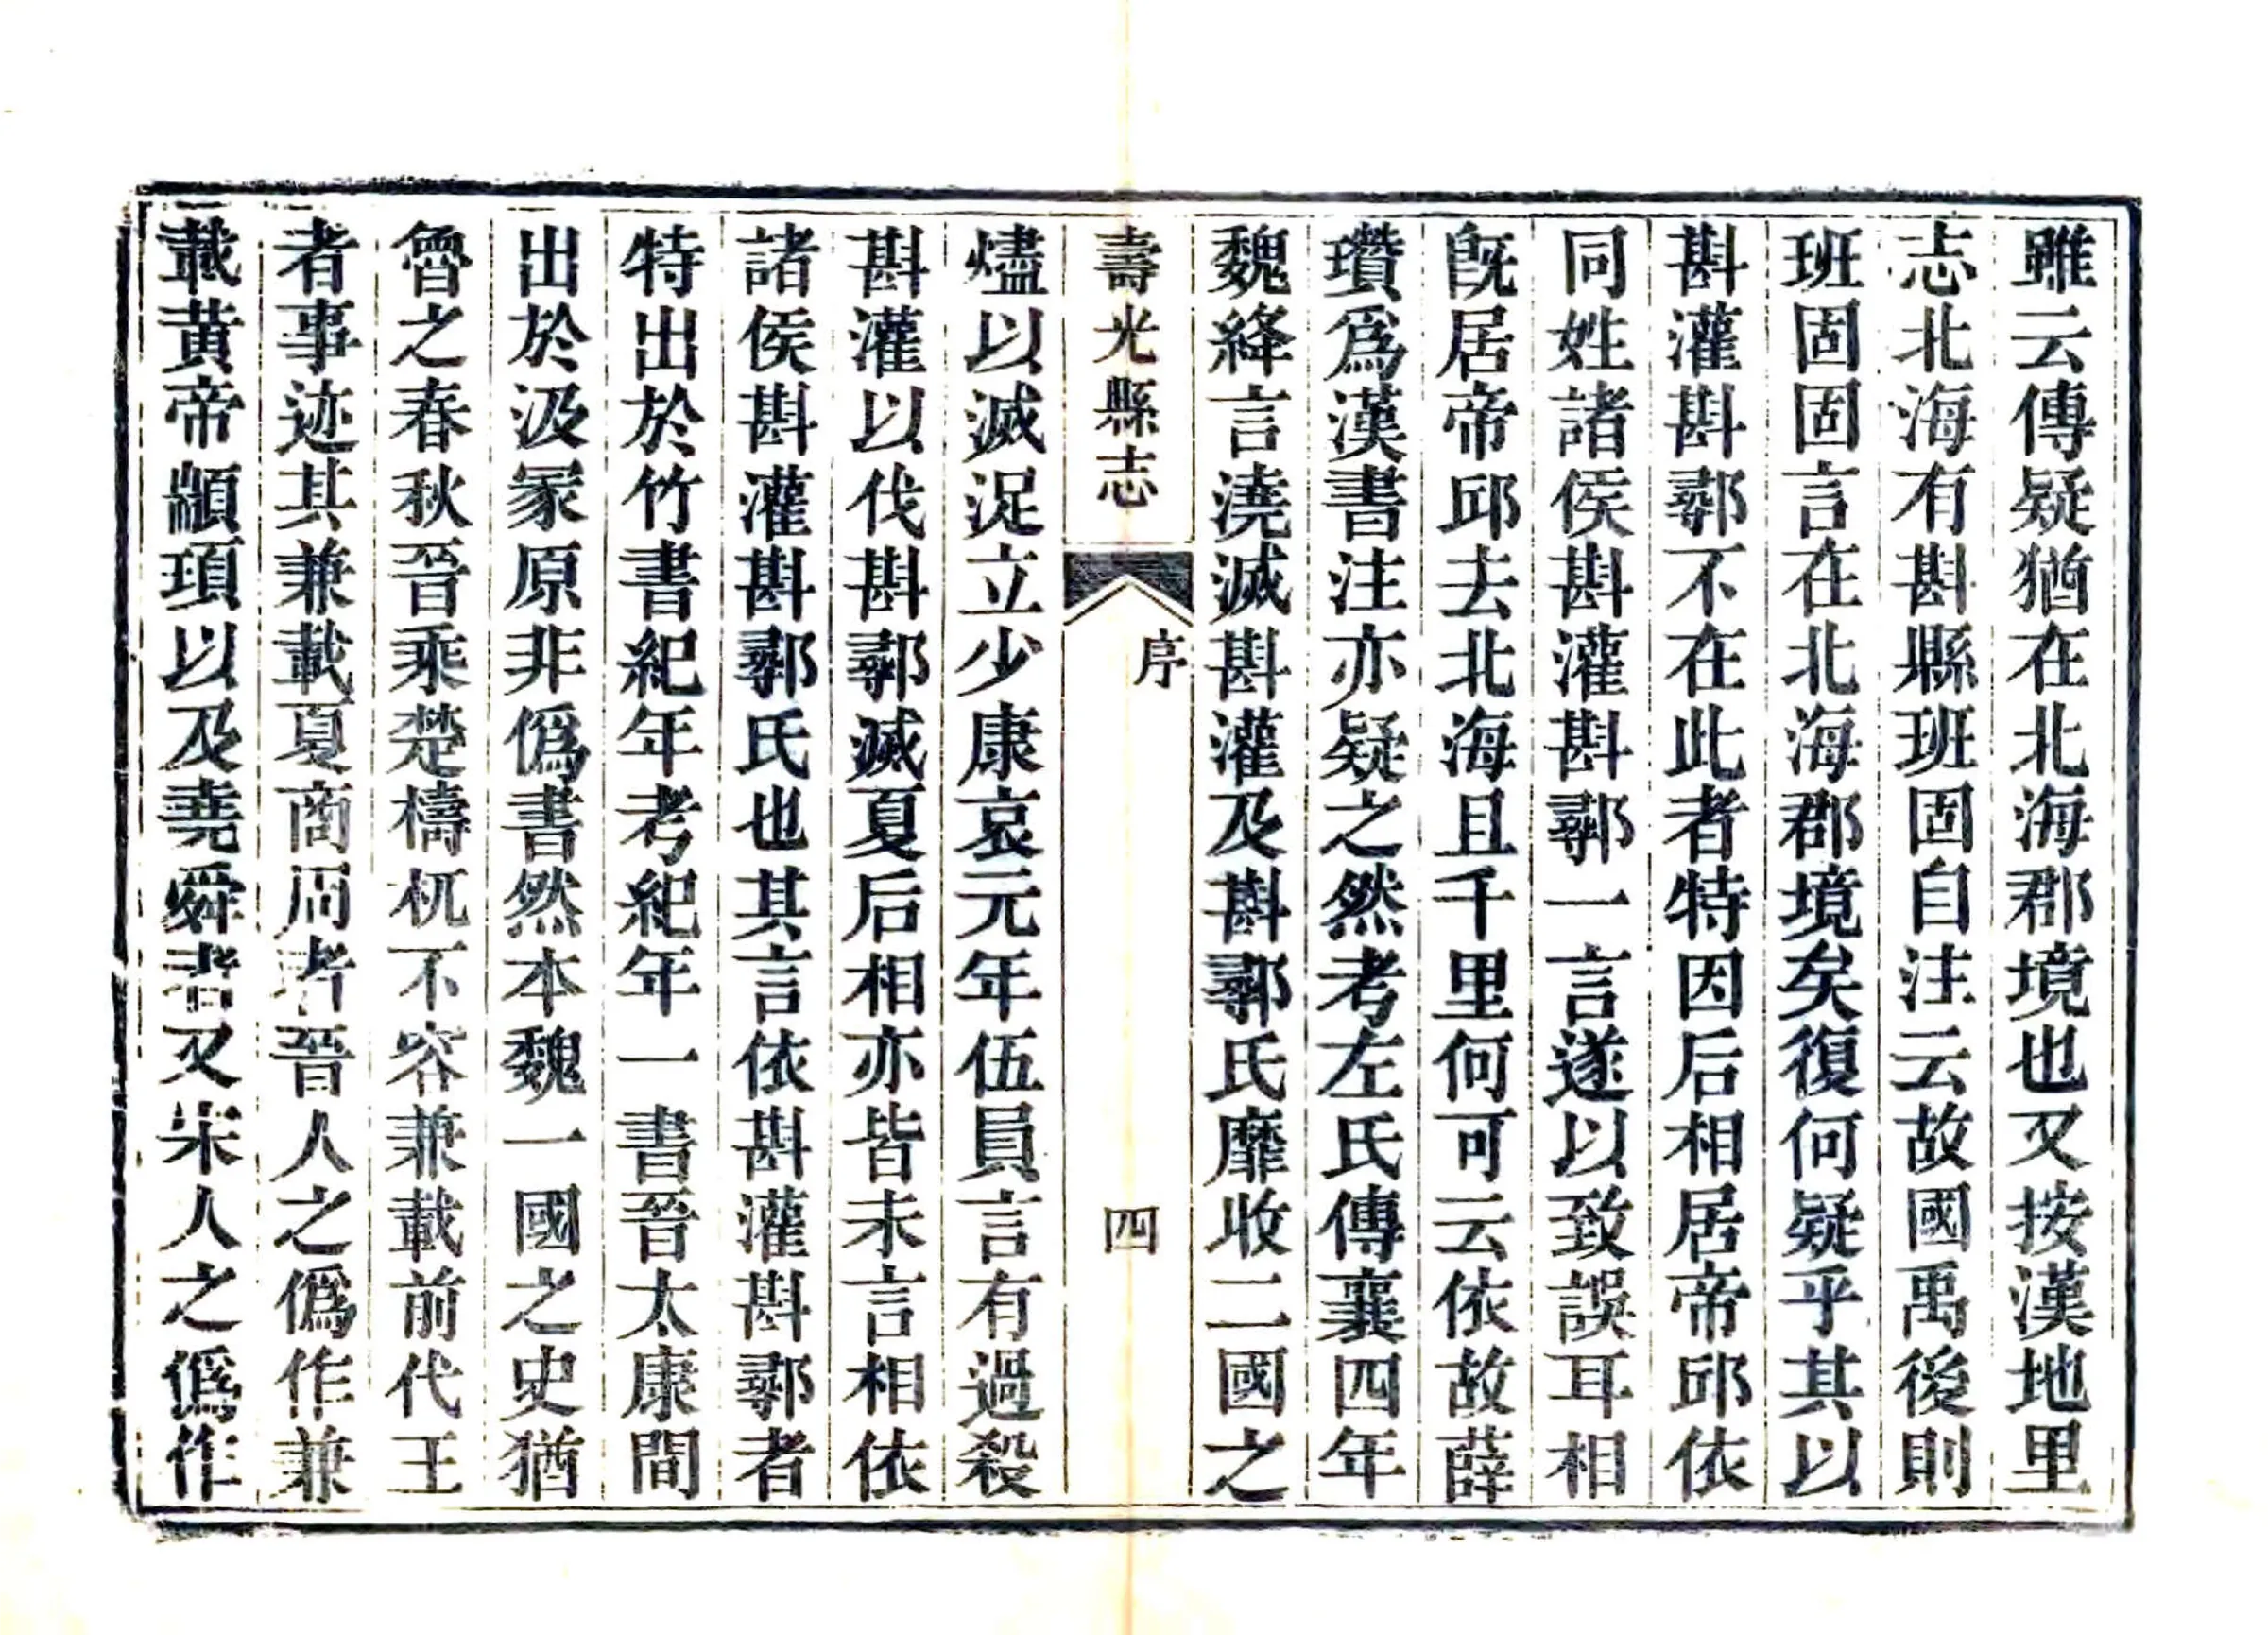 雖云傳疑猶在北海郡境也又按漢地里
志北海有斟縣班固自注云故國禹後則
班固固言在北海郡境矣復何疑乎其以
斟灌斟鄩不在此者特因后相居帝邱依
同姓諸侯斟灌斟鄩一言遂以致誤耳相
旣居帝邱去北海且千里何可云依故薛
瓚爲漢書注亦疑之然考左氏傳襄四年
魏絳言澆滅斟灌及斟鄩氏靡收二國之
壽光縣志
序
四
燼以滅浞立少康哀元年伍員言有過殺
斟灌以伐斟鄩滅夏后相亦皆未言相依
諸侯斟灌斟鄩氏也其言依斟灌斟鄩者
特出於竹書紀年考紀年一書晉太康間
出於汲冢原非僞書然本魏一國之史猶
魯之春秋晉乘楚檮杌不容兼載前代王
者事迹其兼載夏商周者晉人之僞作兼
載黃帝顓頊以及堯舜者又宋人之僞作